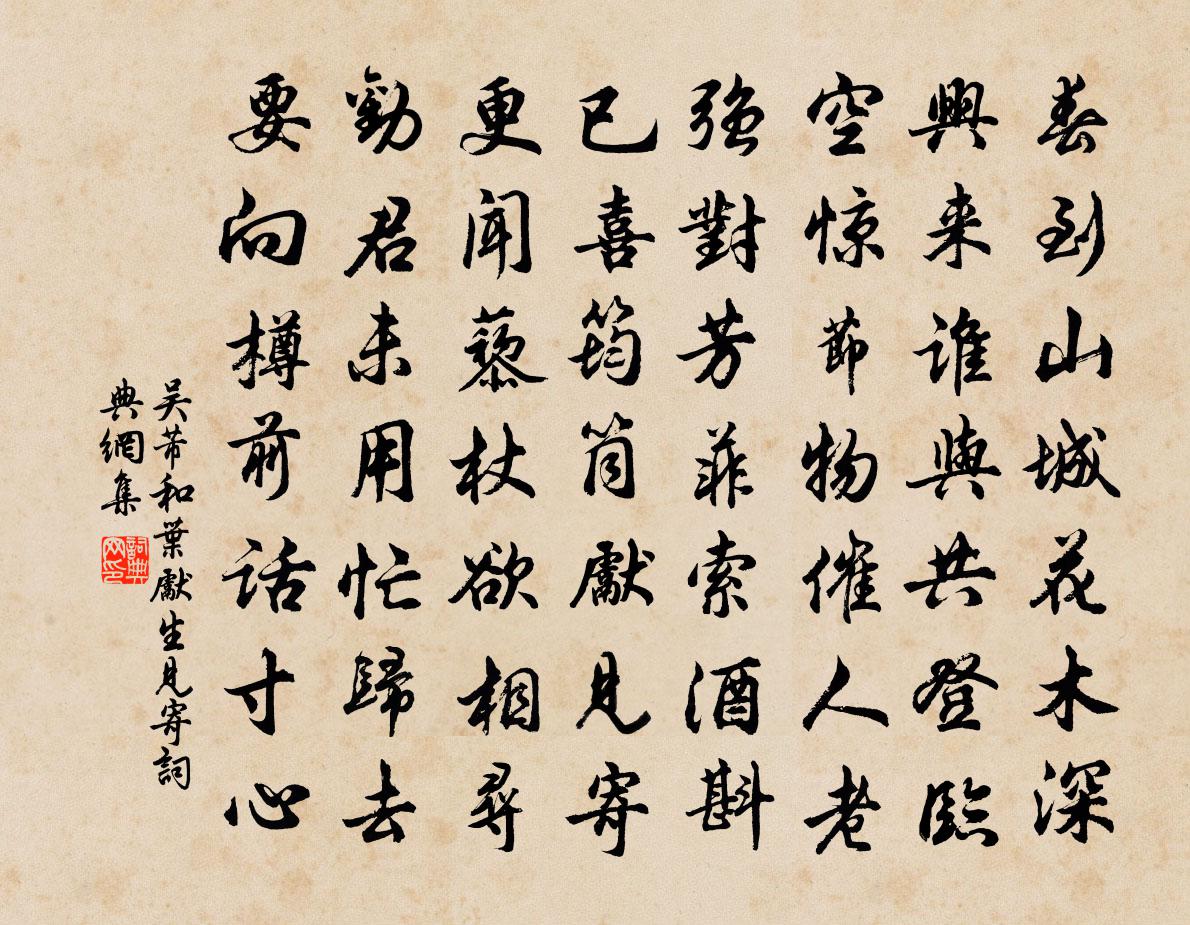 春到山城花木深
興来誰與共登臨
空惊節物催人老
強對芳菲索酒斟
已喜筠筒獻見寄
更聞藜杖欲相尋
勸君未用忙歸去
要向樽前话寸心
吴芾和葉獻生見寄詞
典網集
詞典
网印